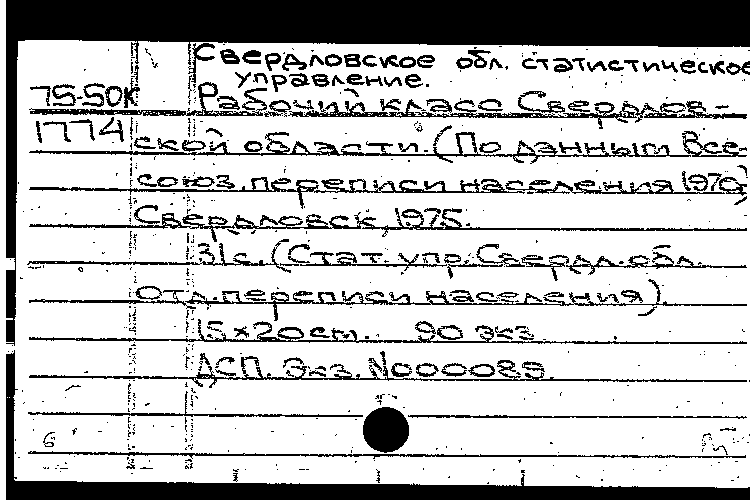 Свердловское обл. статистическое
управление.
75-50К Рабочий класс Свердлов-
1774 ской области. (По данным Все-
союз. переписи населения 1970)
Свердловск, 1975.
31с. (Стат. упр. Свердл. обл.
Отд. переписи населения).
15×20 см. 90 экз
ДСП. Экз. N000089.
6